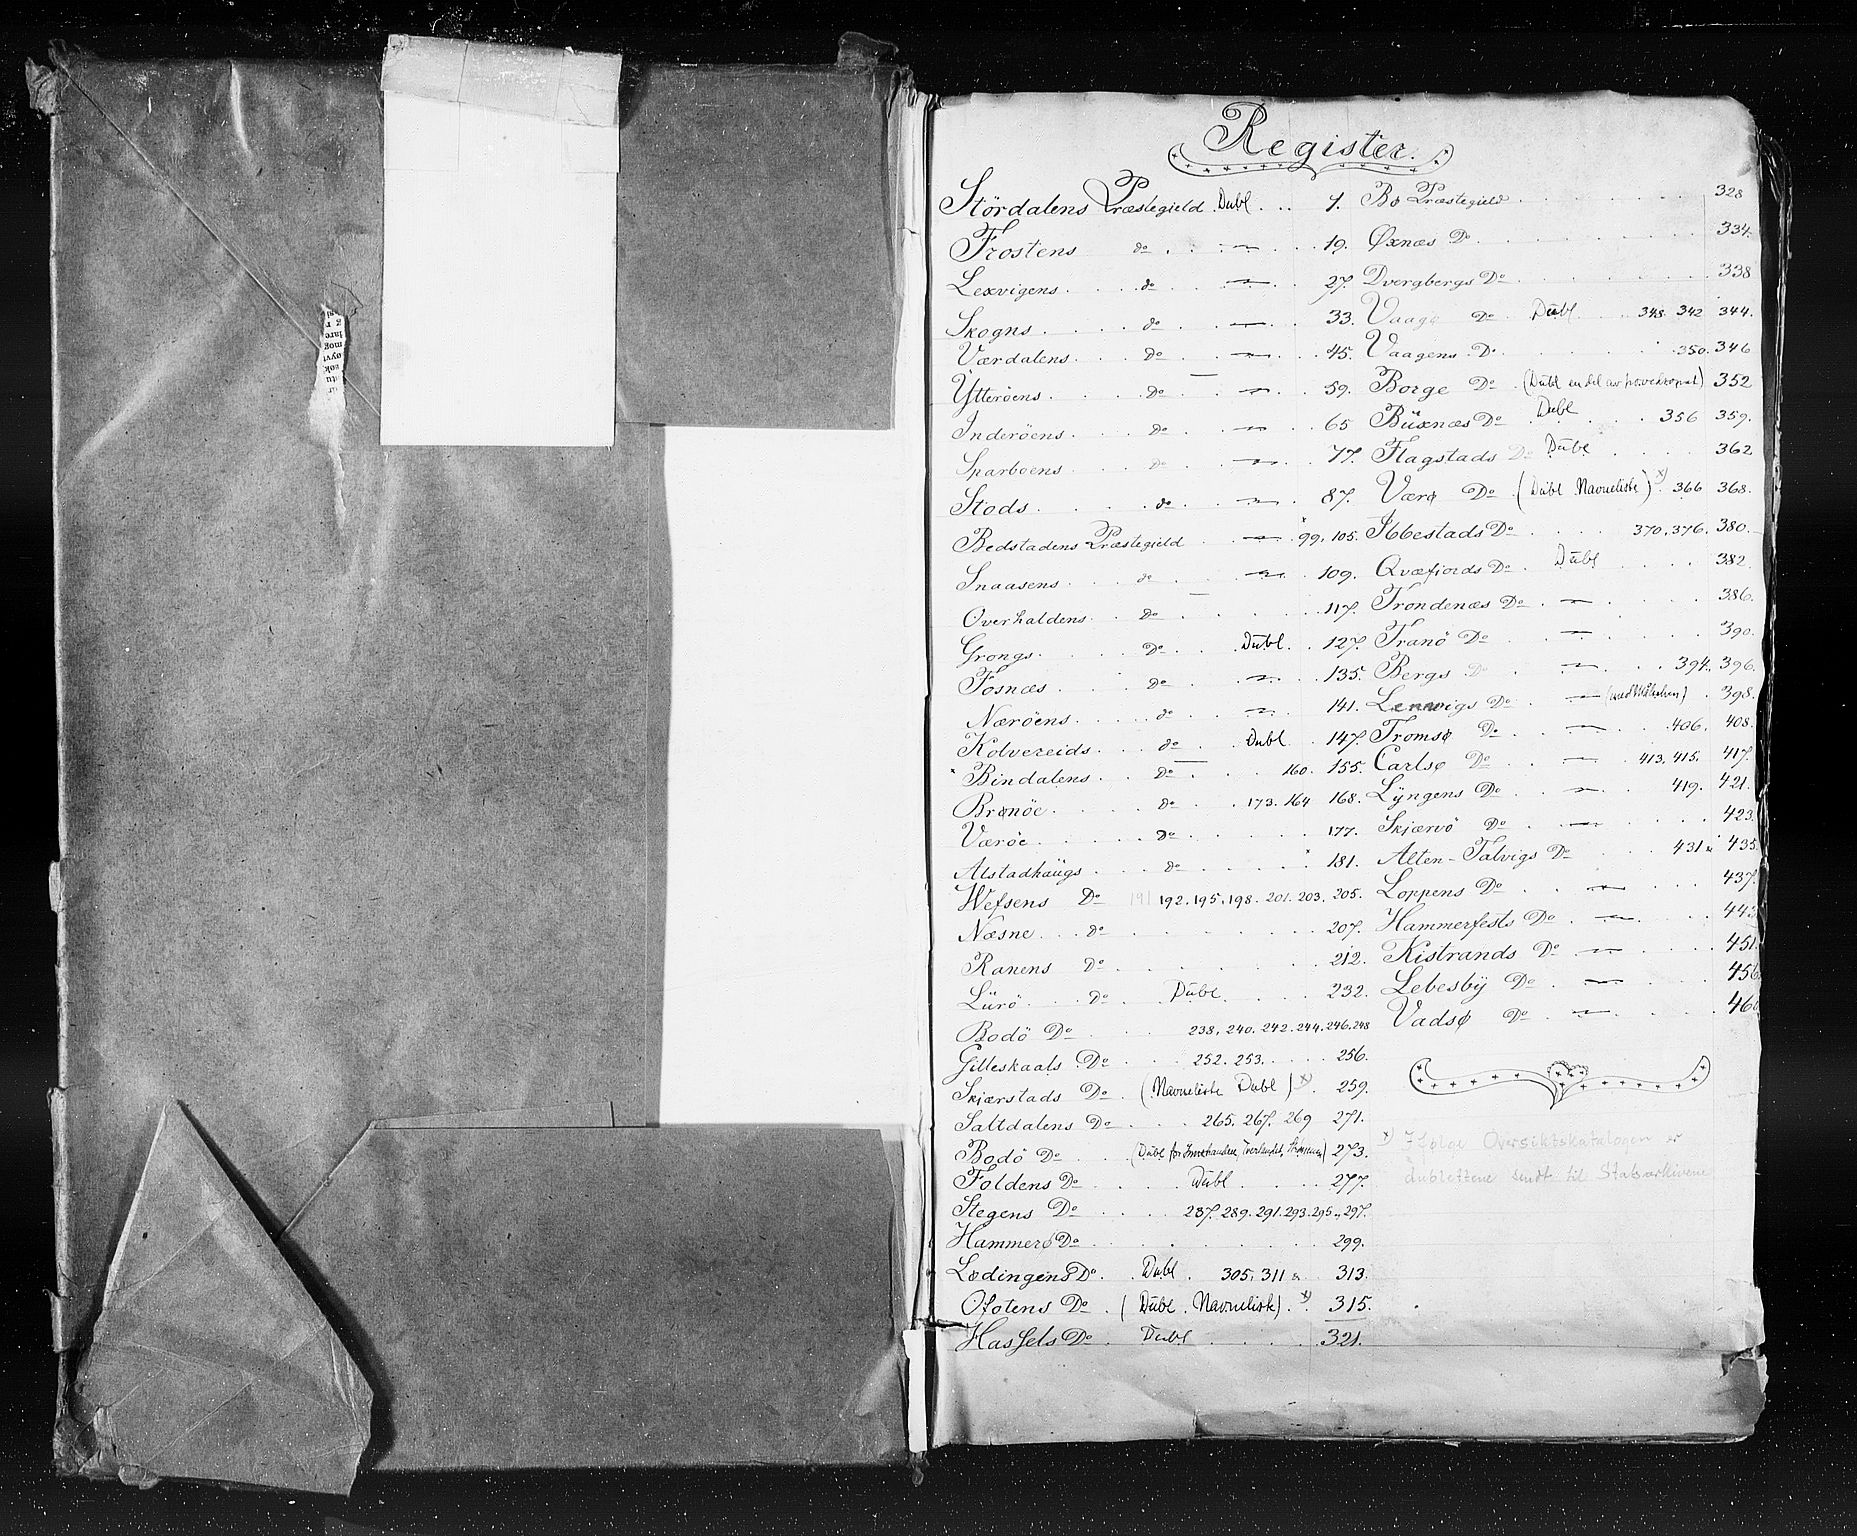 Register.
Stördalens Præstegield Dubl . . . 1.
Frostens do — 19.
Lexvigens. do — 27.
Skogns. do — 33.
Værdalens. do — 45.
Ytteröens. do — 59.
Inderöens. do — 65
Sparboens. do — 77.
Stods. do — 87.
Bedstadens Præstegield — 99, 105.
Snaasens. do — 109.
Overhaldens. do 117.
Grongs. Do Dubl. 127.
Fosnæs. do — 135.
Næröens. do — 141.
Kolvereids. do Dubl. 147.
Bindalens. do 160. 155.
Brønöe. do 173. 164 168.
Væröe. do 177.
Alstadhaügs. do 181.
Wefsens Do 191 192. 195. 198. 201. 203. 205.
Næsne. do 207.
Ranens Do 212.
Lürö. do Dubl. 232.
Bodö Do 238, 240. 242. 244. 246. 248
Gilleskaals Do 252. 253. 256.
Skjærstads Do (Navneliste Dubl) x) 259.
Saltdalens Do 265. 267. 269 271.
Bodö Do (Dubl for 273.
Foldens Do Dubl 277.
Stegens Do 287. 289. 291. 293. 295. 297.
Hammerø Do 299.
Lødingens Do. Dubl. 305, 311 & 313.
Ofotens Do. (Dubl. Navnelisk). x) 315.
Hassels Do. Dubl 321.
Bø Præstegield 328
Øxnæs Do 334.
Dvergbergs Do 338
Vaagø Do Dubl. 348. 342 344.
Vaagens. Do. 350. 346
Borge Do. (Dubl en del av hovedsognet) 352
Büxnæs Do Dubl 356 359.
Flagstads Do Dubl 362
Værø Do (Dubl Navneliste) x) 366 368.
Ibbestads Do 370, 376. 380.
Qvæfiords Do. Dubl 382.
Trondenæs Do. — 386.
Tranö Do — 390.
Bergs Do — 394. 396.
Lenvigs Do — 398.
Tromsø Do — 406. 408.
Carlsø Do — 413, 415. 417.
Lÿngens Do — 419. 421.
Skjærvö Do — 423.
Alten-Talvigs Do 431 & 435.
Loppens Do — 437.
Hammerfests Do — 443
Kistrands Do — 451.
Lebesbÿ Do — 456
Vadsø Do — 460
x) Ifølge Oversiktskatalogen er
dublettene sendt til Statsarkivene